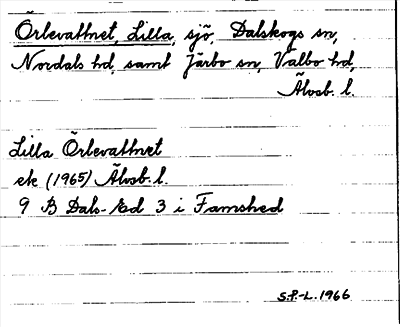 Örlevattnet, Lilla, sjö, Dalskogs sn,
Nordals hd, samt Järbo sn, Valbo hd,
Älvsb. l.
Lilla Örlevattnet
ek (1965) Älvsb. l.
9 B Dals-Ed 3 i Famshed
S.P.-L. 1966